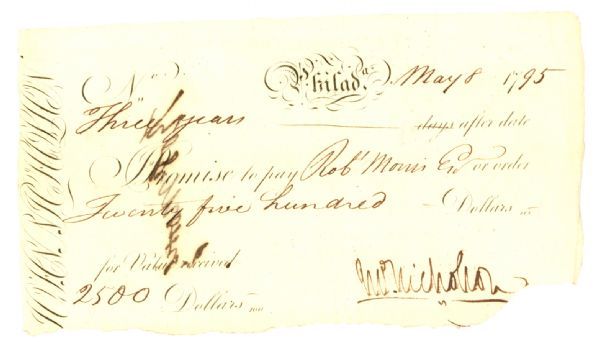 No. Philada. May 8 1795
Three years days after date
I Promise to pay Robt. Morris Esqr. or order
Twenty five hundred Dollars
for Value received
2500 Dollars
Jno. Nicholson